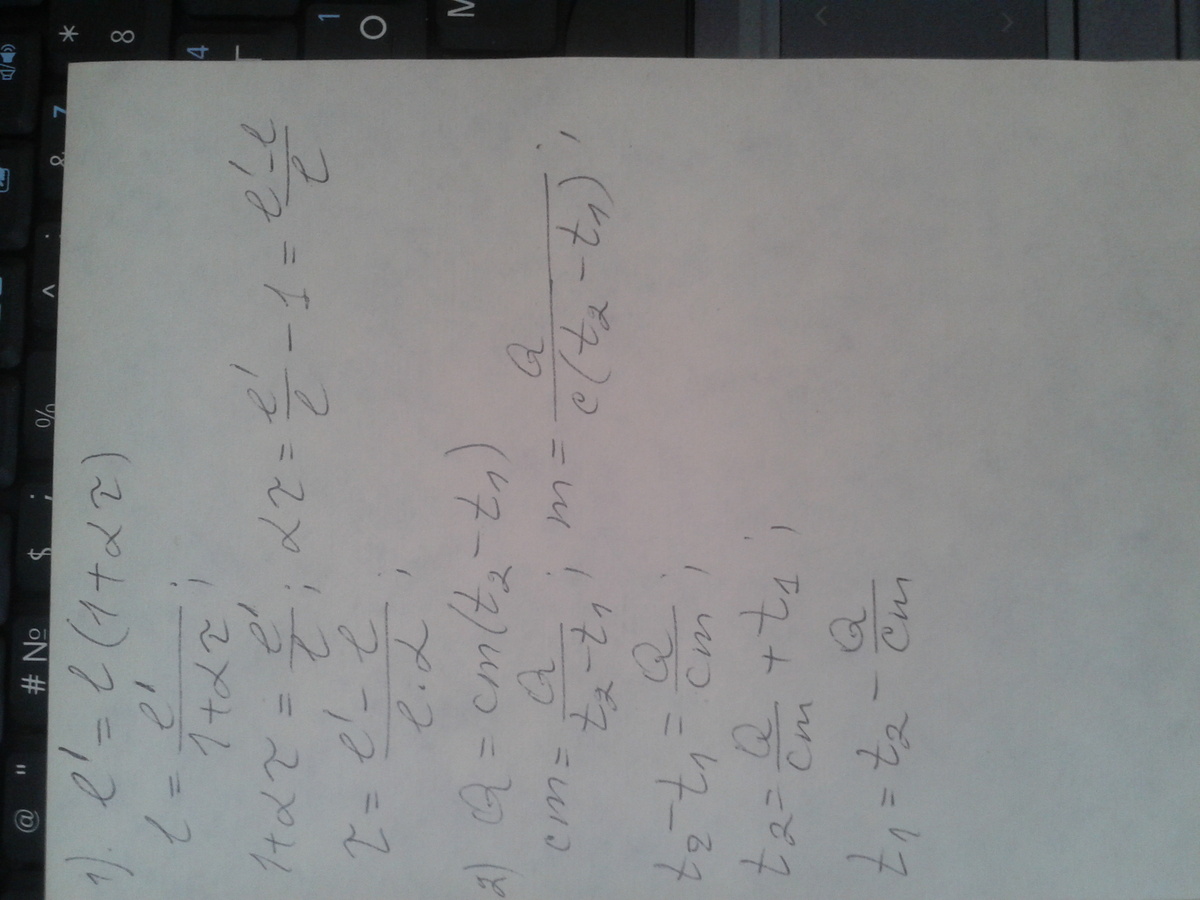 1). l' = l (1+ατ)
l = l'/(1+ατ) ;
1+ατ = l'/l ; ατ = l'/l − 1 = (l'−l)/l
τ = (l'−l)/(l·α) ;
2) Q = cm(t₂−t₁)
cm = Q/(t₂−t₁) ; m = Q/(c(t₂−t₁)) ;
t₂−t₁ = Q/cm ;
t₂ = Q/cm + t₁ ;
t₁ = t₂ − Q/cm
@ " # № $ ; % ^ : & 7 * 8
4
1 O
M